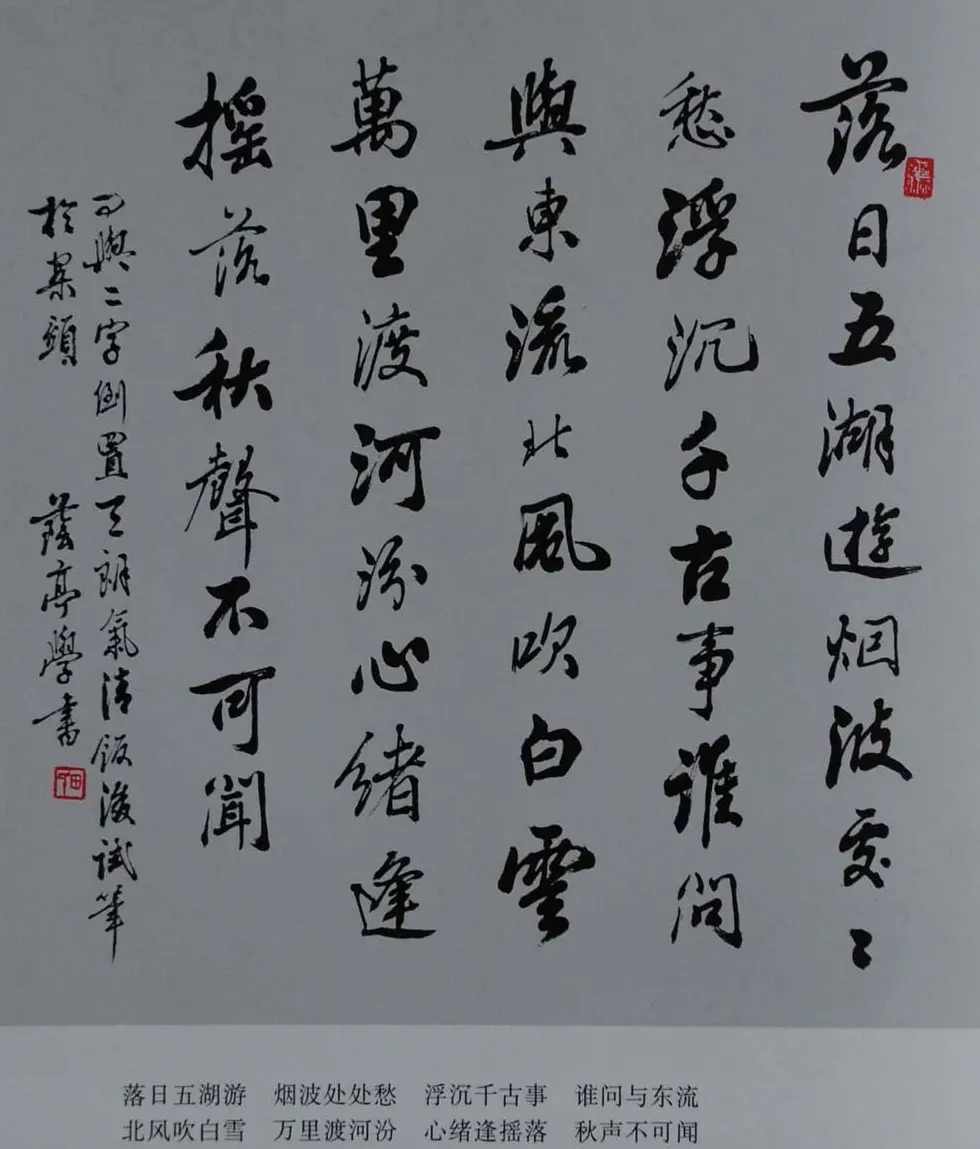 落日五湖遊烟波處〻
愁浮沉千古事誰問
與東流北風吹白雲
萬里渡河汾心緒逢
摇落秋聲不可聞
問與二字倒置天朗氣清飯後試筆
於案頭 蔭亭學書
落日五湖游 烟波处处愁 浮沉千古事 谁问与东流
北风吹白雪 万里渡河汾 心绪逢摇落 秋声不可闻